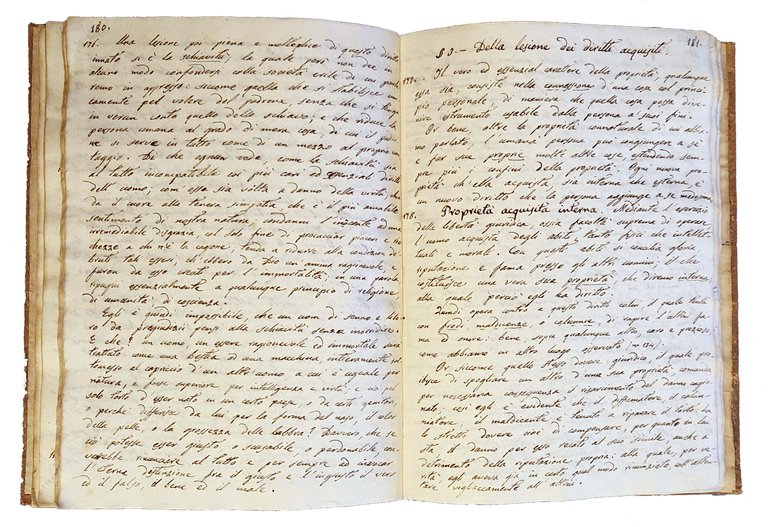 180.
176. Una lesione poi piena e molteplice di questo diritto
innato si è la schiavitù; la quale però non dee in
alcuno modo confondersi colla società civile di cui par-
remo in appresso: siccome quella che si stabilisce
camente pel volere del padrone, senza che si
in verun conto quello dello schiavo; e che riduce la
persona umana al grado di mera cosa, di cui il padro-
ne si serve in tutto come di un mezzo al proprio van-
taggio. Di che ognun vede, come la schiavitù sia
al tutto incompatibile coi più cari ed essenziali diritti
dell'uomo; com'essa sia volta a danno della virtù; che
da il cuore alla tenera simpatia che è il più amabile
sentimento di nostra natura; condanni l'innocente ad una
irremediabile disgrazia col solo fine di procacciar piaceri e ric-
chezze a chi n'è la cagione; tenda a ridurre alla condizione di
bruto tali esseri, ch'ebbero da Dio un animo ragionevole e
furon da esso creati per l'immortalità; in una parola
ripugni essenzialmente a qualunque principio di religione,
di umanità, di coscienza.
Egli è quindi impossibile, che un uom di senno e libe-
ro da pregiudizi pensi alla schiavitù senza inorridire.
E che? un uomo, un essere ragionevole ed immortale sarà
trattato come una bestia od una macchina interamente sot-
tomessa al capriccio d'un altro uomo, a cui è uguale per
natura, e forse superiore per intelligenza e virtù; e ciò pel
solo torto d'esser nato in un certo paese, o da certi genitori,
o perchè differisce da lui per la forma del naso, il color
della pelle, o la grossezza delle labbra? Davvero, che se
ciò potesse esser giusto, o scusabile, o perdonabile, con-
verrebbe rinunciare al tutto e per sempre ad invocar
l'eterna distinzione fra il giusto e l'ingiusto il vero
ed il falso il bene ed il male.
181.
§ 3.— Della lesione dei diritti acquisiti.
177. Il vero ed essenzial carattere della proprietà, qualunque
essa sia, consiste nella connessione di una cosa col princi-
pio personale, di maniera che quella cosa possa dive-
nire istrumento usabile dalla persona a' suoi fini.
Or bene, oltre la proprietà connaturale di cui abbia-
mo parlato, l'umana persona può congiungere a sè
e far sue proprie molte altre cose, estendendo sem-
pre più i confini della proprietà. Ogni nuova pro-
prietà ch'ella acquista, sia interna che esterna, è
un nuovo diritto che la persona aggiunge a se medesima.
178. Proprietà acquisita interna. Mediante l'esercizio
della libertà giuridica, ossia facoltà suprema di operare
l'uomo acquista degli abiti tanto fisici che intellet-
tuali e morali. Con questi abiti si concilia gloria
riputazione e fama presso gli altri uomini, il che
costituisce una vera sua proprietà, che diremo interna
alla quale perciò egli ha diritto.
Quindi opera contro a questo diritto colui il quale tenta
con frodi, maldicenze, o calunnie, di rapire l'altrui fa-
ma od onore: bene, sopra qualunque altro caro e prezioso,
come abbiamo in altro luogo osservato
Or siccome quello stesso dovere giuridico, il quale proi-
bisce di spogliare un altro d'una sua proprietà comanda
per necessaria conseguenza il risarcimento del danno cagio-
nato; così egli è evidente che il diffamatore il calun-
niatore il maldicente è tenuto a riparare il torto; ha
lo stretto dovere cioè di compensare, per quanto in lui
sta il danno per esso recato al suo simile anche a
detrimento della riputazione propria: alla quale, per ve-
rità, egli aveva già in certo qual modo rinunziato coll'atten-
tare vigliaccamente all'altrui.